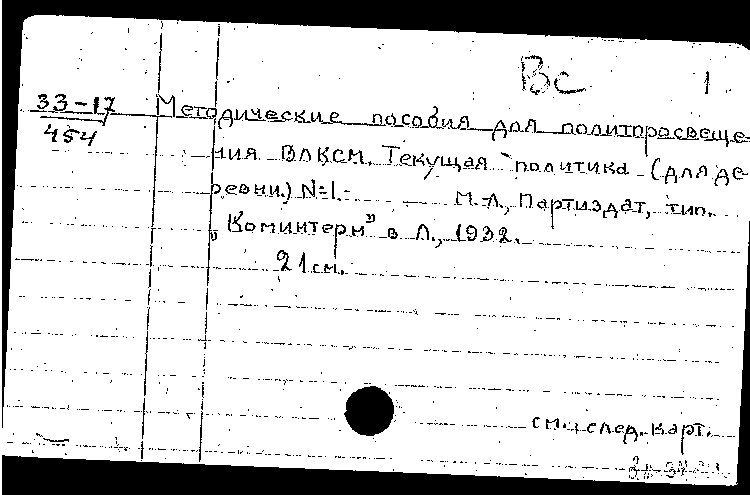 Вс 1
33-17
454
Методические пособия для политпросвеще-
ния ВЛКСМ. Текущая политика (для де-
ревни.) N=1.- М.-Л., Партиздат, тип.
„Коминтерн" в Л., 1932.
21см.
см. след. карт.